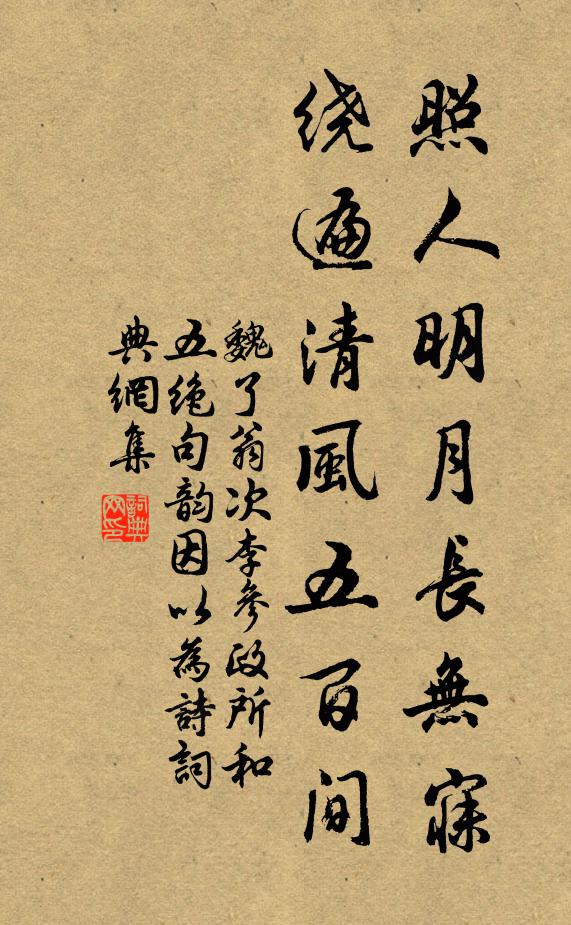 照人明月長無寐
繞遍清風五百間
魏了翁次李參政所和
五絶句韵因以為詩詞
典網集
詞典網印